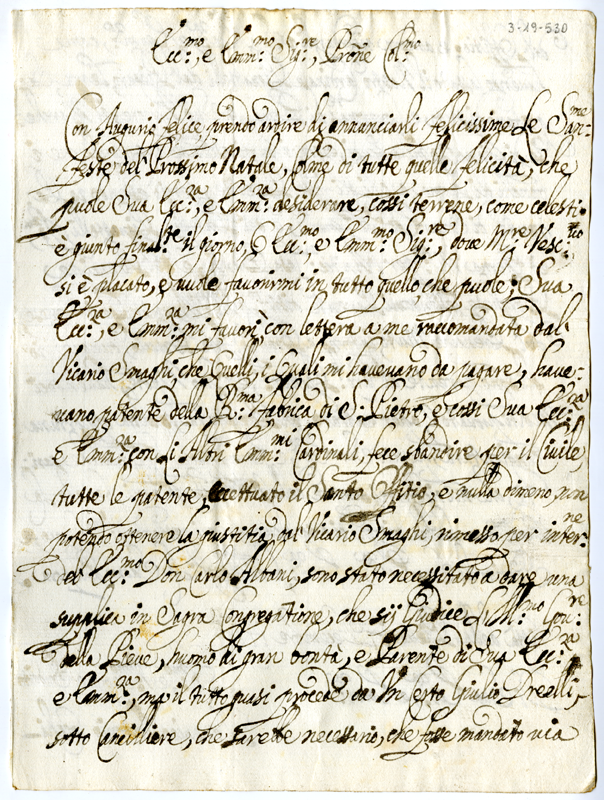 3-19-530
Ecc:mo, e Emm:mo Sig:re, Prone Col:mo
Con Augurio felice prendo ardire di annunciarli felicissime Le San:me
feste del Prossimo Natale, colme di tutte quelle felicità, che
puole Sua Ecc:za, e Emm:za desiderare, cossi terrene, come celesti.
è giunto final:te il giorno, ò Ecc:mo e Emm:mo Sig:re, dove M:re Vesc:
si è placato, e vuole favorirmi in tutto quello, che puole; Sua
Ecc:za, e Emm:za mi favorì, con lettera a me raccomandata dal
Vicario Smaghi, che Quelli, i Quali mi havevano da pagare, have-
vano patente della R:ma fabrica di S: Pietro, e cossi Sua Ecc:za
e Emm:za con Li Altri Emm:mi Cardinali, fece sbandire per il Civile,
tutte le patente, eccettuato il Santo Offitio, e nulla dimeno non
potendo ottenere la giustitia dal Vicario Smaghi, rimesso per inter:ne
del Ecc:mo Don Carlo Albani, sono stato necessitato a dare una
supplica in Sagra Congregatione, che sij Giudice L'Ill:mo Gov:re
della Pieve, huomo di gran bontà, e Parente di Sua Ecc:za
e Emm:za, ma il tutto quasi procede da Un certo Giulio
sotto Canciliere, che sarebbe necessario, che fosse mandato via